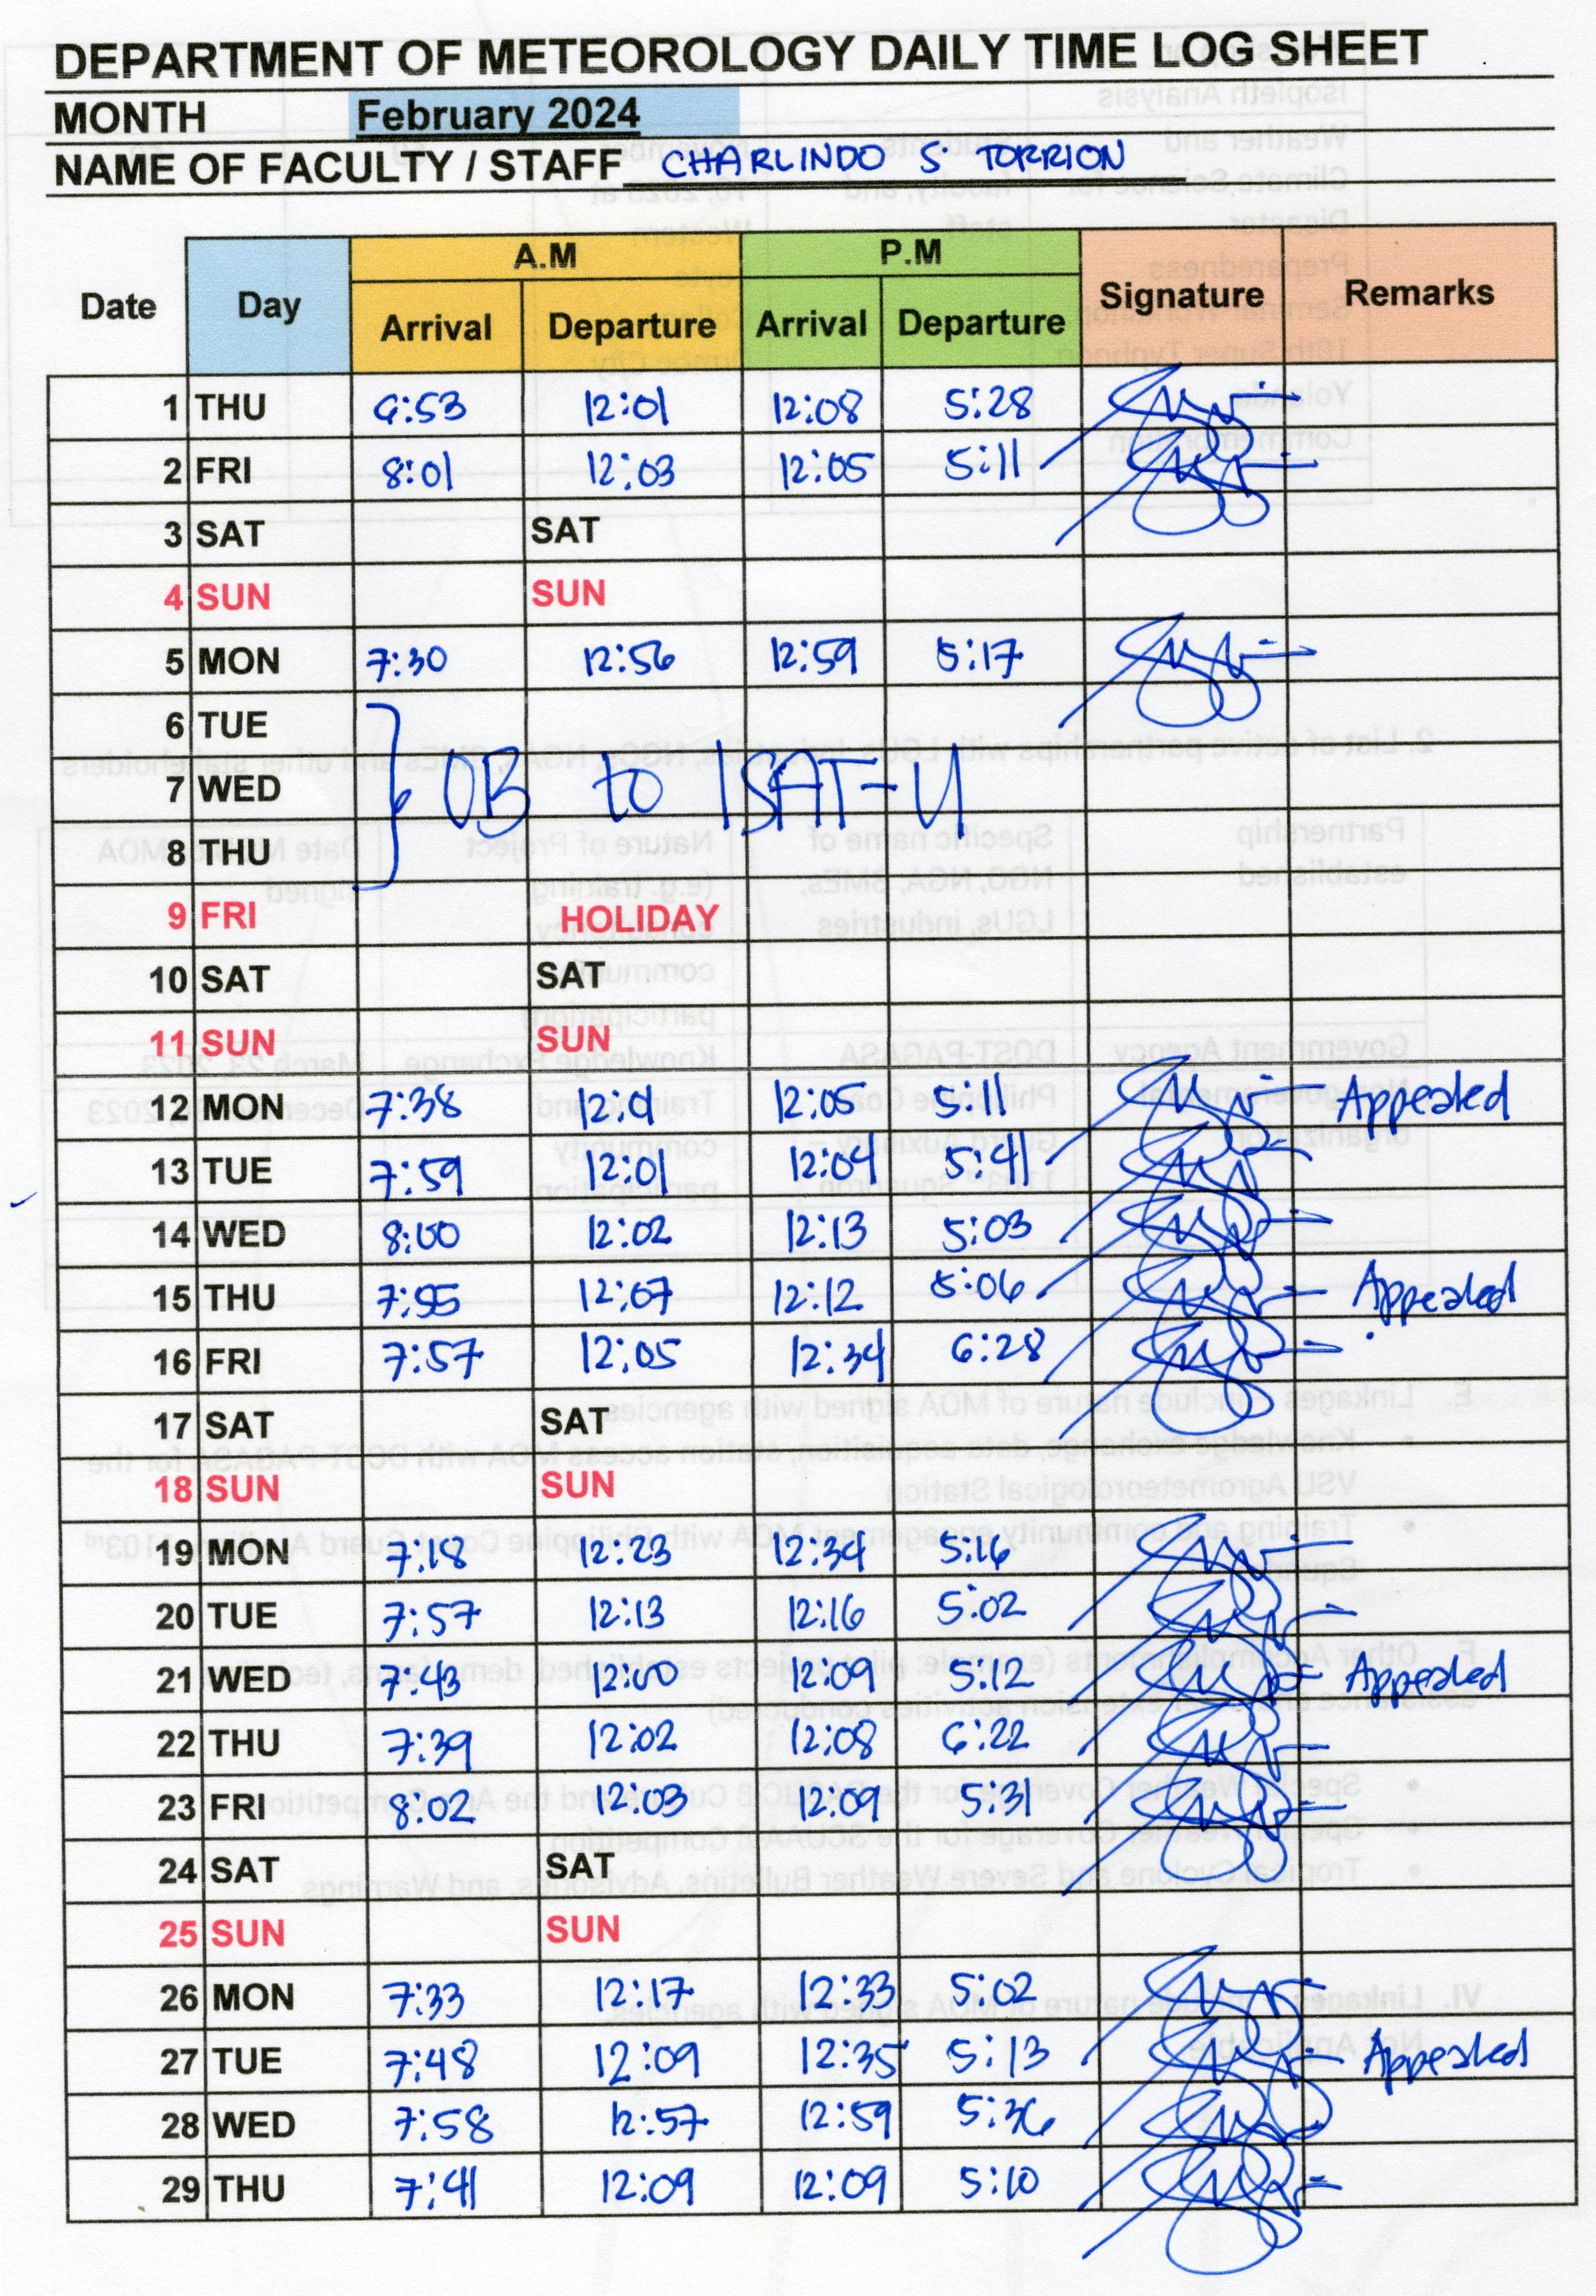 DEPARTMENT OF METEOROLOGY DAILY TIME LOG SHEET
MONTH February 2024
NAME OF FACULTY / STAFF CHARLINDO S TORRION
Date Day A.M P.M Signature Remarks
Arrival Departure Arrival Departure
1 THU 6:53 12:01 12:08 5:28
2 FRI 8:01 12:03 12:05 5:11
3 SAT SAT
4 SUN SUN
5 MON 7:30 12:56 12:59 5:17
6 TUE
7 WED OB to ISAT-U
8 THU
9 FRI HOLIDAY
10 SAT SAT
11 SUN SUN
12 MON 7:38 12:01 12:05 5:11 Appealed
13 TUE 7:59 12:01 12:09 5:41
14 WED 8:00 12:02 12:13 5:03
15 THU 7:55 12:07 12:12 5:06 Appealed
16 FRI 7:57 12:05 12:34 6:28
17 SAT SAT
18 SUN SUN
19 MON 7:18 12:23 12:39 5:16
20 TUE 7:57 12:13 12:16 5:02
21 WED 7:43 12:00 12:09 5:12 Appealed
22 THU 7:39 12:02 12:08 6:22
23 FRI 8:02 12:03 12:09 5:31
24 SAT SAT
25 SUN SUN
26 MON 7:33 12:17 12:33 5:02
27 TUE 7:48 12:09 12:35 5:13 Appealed
28 WED 7:58 12:57 12:59 5:36
29 THU 7:41 12:09 12:09 5:10